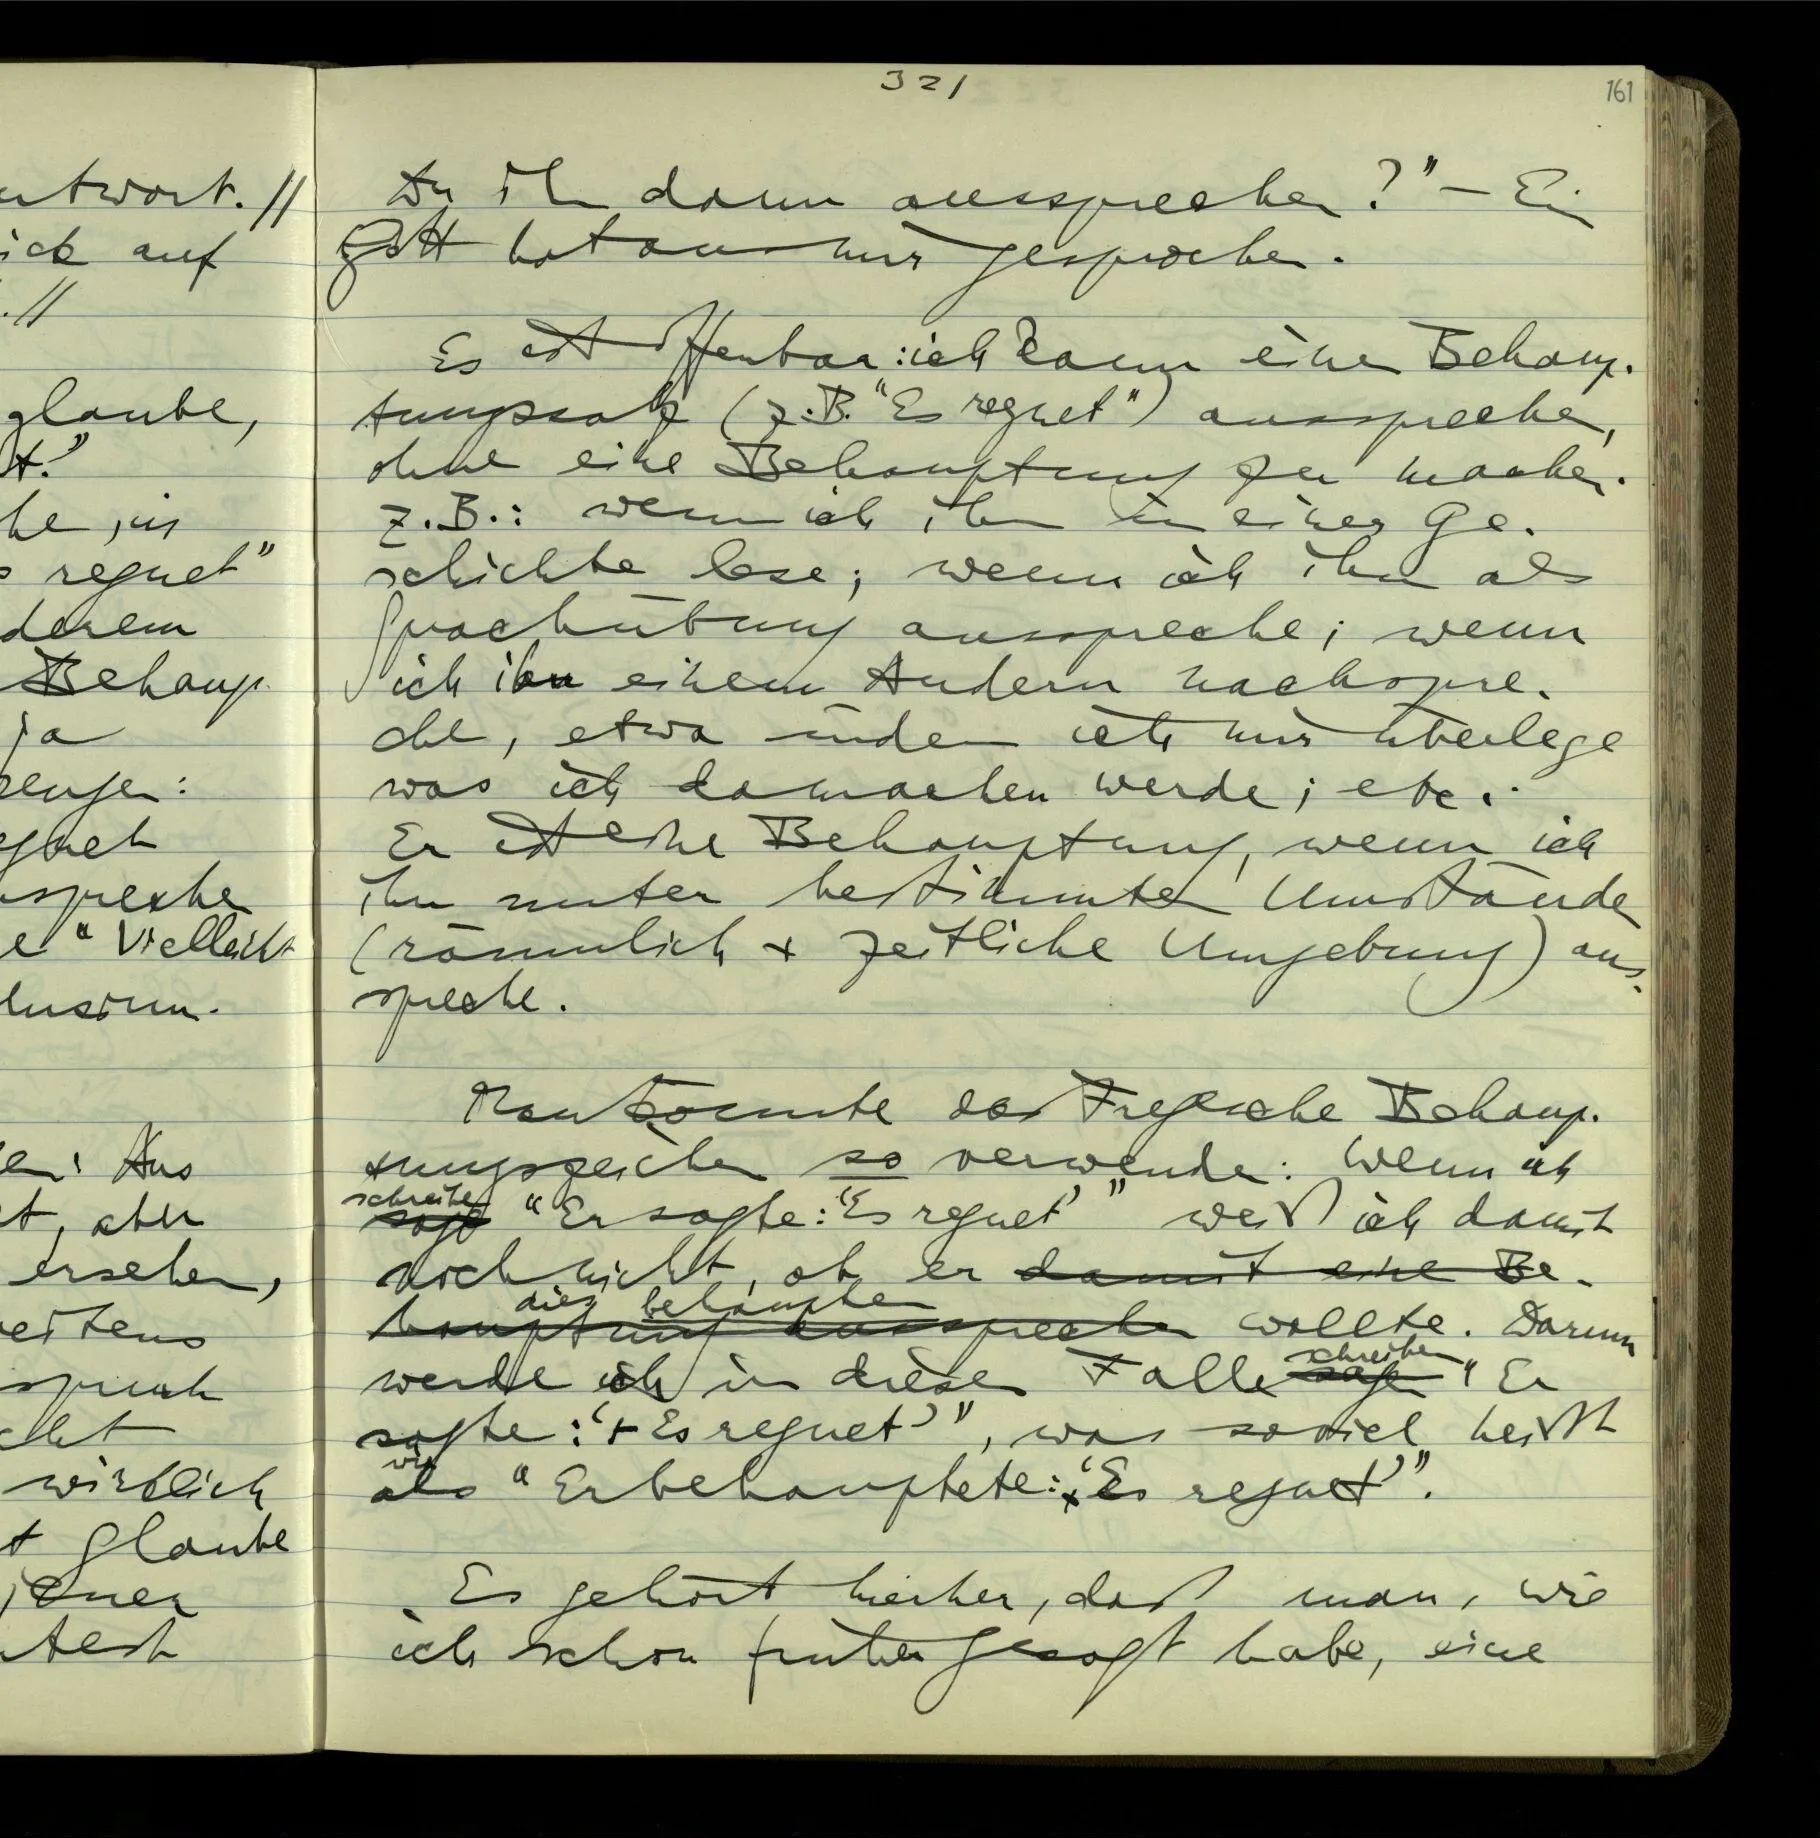 321
161
ntwort. //
ick auf
. //
glaube,
t."
he, in
s regnet"
derem
Behaup
ja
zeugen:
egnet
sspreche
e "Vielleicht
lusion.
en: Aus
t, aber
ersehen,
eitens
spruch
cht
wirklich
t glaube
jener
ntest
Du ihn dann aussprechen?" – Ein
Gott hat aus mir gesprochen.
Es ist offenbar: ich kann einen Behaup-
tungssatz (z.B. "Es regnet") aussprechen,
ohne eine Behauptung zu machen.
z.B.: wenn ich ihn in einer Ge-
schichte lese; wenn ich ihn als
Sprachübung ausspreche; wenn
ich ihn einem Andern nachspre-
che, etwa indem ich mir überlege
was ich da machen werde; etc..
Er ist eine Behauptung, wenn ich
ihn unter bestimmten Umständen
(räumlich + zeitliche Umgebung) aus-
spreche.
Man könnte das Fregesche Behaup-
tungszeichen so verwenden: Wenn ich
schreibe
sage "Er sagte: 'Es regnet'" weiß ich damit
noch nicht, ob er damit eine Be-
dies behaupten
hauptung aussprechen wollte. Darum
schreiben
werde ich in diesem Falle sagen "Er
sagte: '⊢ Es regnet'", was soviel heißt
wie
als "Er behauptete: 'Es regnet'".
Es gehört hierher, daß man, wie
ich schon früher gesagt habe, eine